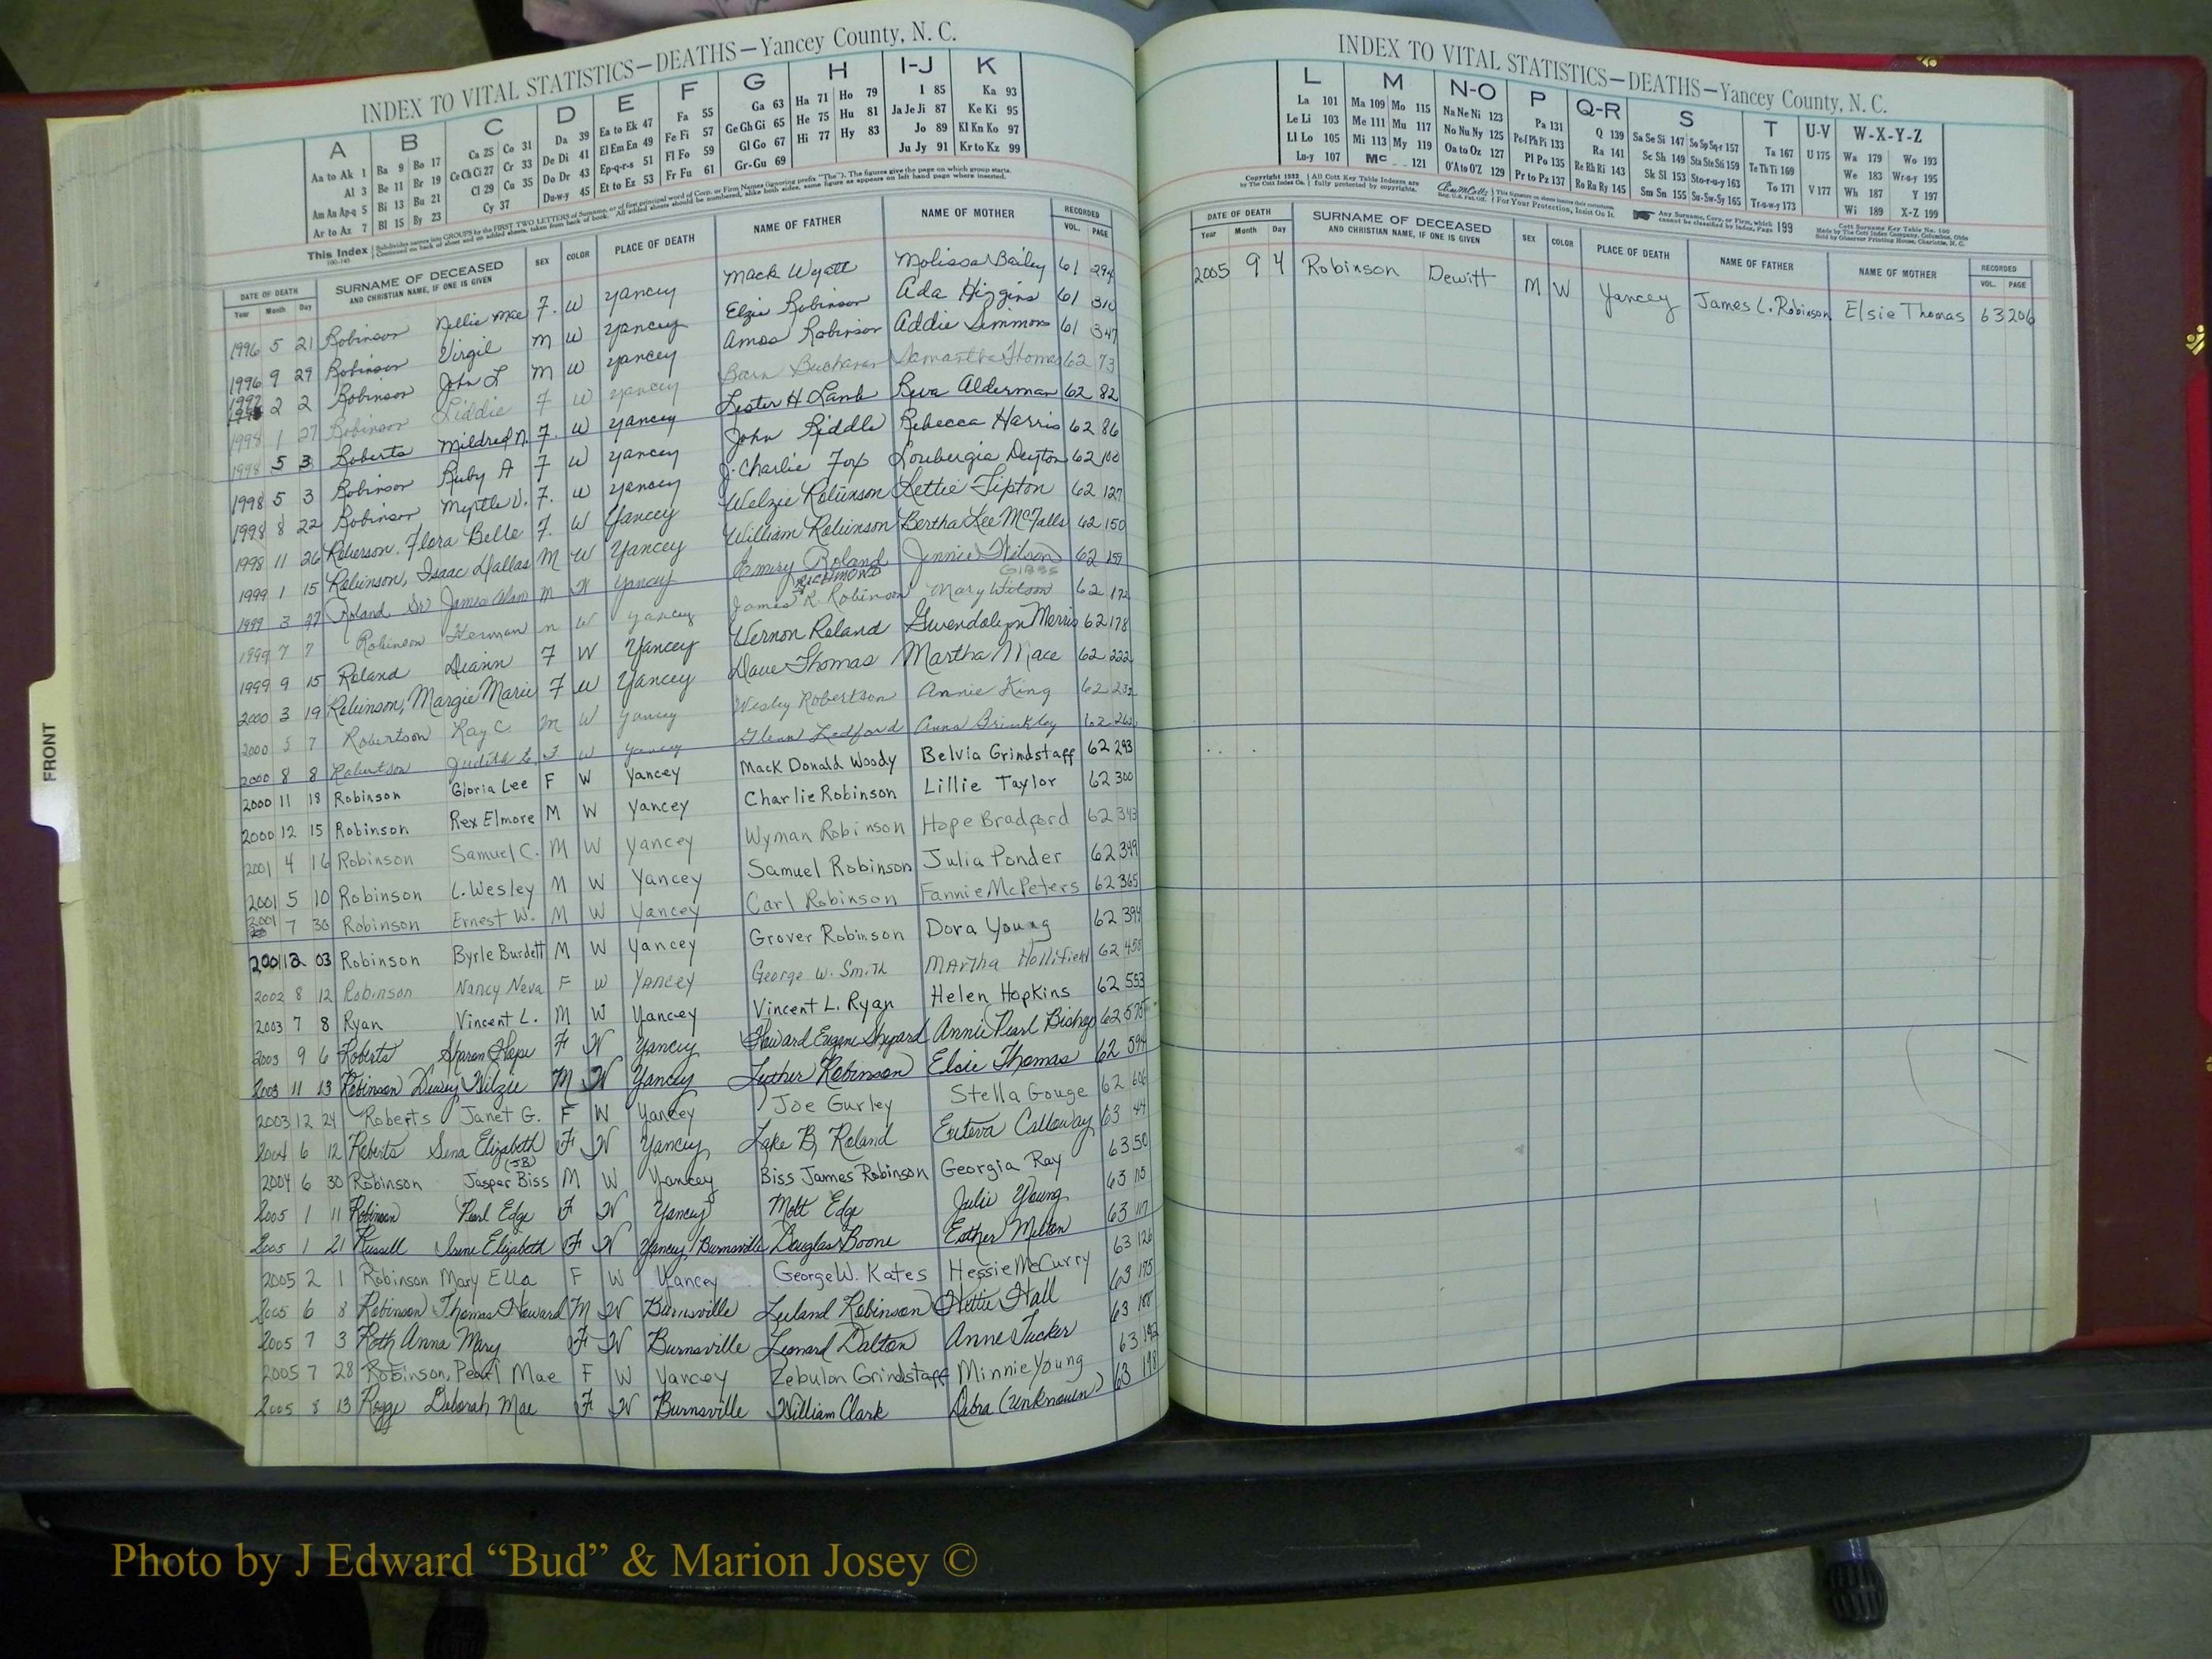 INDEX TO VITAL STATISTICS—DEATHS—Yancey County, N. C.
A B C D E F G H I-J K
Aa to Ak 1 Ba 9 Bo 17 Ca 25 Co 31 Da 39 Ea to Ek 47 Fa 55 Ga 63 Ha 71 Ho 79 I 85 Ka 93
Al 3 Be 11 Br 19 Ce Ch Ci 27 Cr 33 De Di 41 El Em En 49 Fe Fi 57 Ge Gh Gi 65 He 75 Hu 81 Ja Je Ji 87 Ke Ki 95
Am An Ap-q 5 Bi 13 Bu 21 Cl 29 Cu 35 Do Dr 43 Ep-q-r-s 51 Fl Fo 59 Gl Go 67 Hi 77 Hy 83 Jo 89 Kl Kn Ko 97
Ar to Az 7 Bl 15 By 23 Cy 37 Du-w-y 45 Et to Ez 53 Fr Fu 61 Gr-Gu 69 Ju Jy 91 Kr to Kz 99
This Index Subdivides names into GROUPS by the FIRST TWO LETTERS of Surname, or of first principal word of Corp. or Firm Names (ignoring prefix "The"). The figures give the page on which group starts.
Continued on back of sheet and on added sheets, taken from back of book. All added sheets should be numbered, alike both sides, same figure as appears on left hand page where inserted.
DATE OF DEATH SURNAME OF DECEASED AND CHRISTIAN NAME, IF ONE IS GIVEN SEX COLOR PLACE OF DEATH NAME OF FATHER NAME OF MOTHER RECORDED
Year Month Day VOL. PAGE
1996 5 21 Robinson Nellie Mae F. W Yancey Mack Wyatt Molissa Bailey 61 294
1996 9 29 Robinson Virgil M W Yancey Elzie Robinson Ada Higgins 61 310
1997 2 2 Robinson John L M W Yancey Amos Robinson Addie Simmons 61 347
1998 1 27 Robinson Liddie F W Yancey Buchanan Samantha Thomas 62 73
1998 5 3 Roberts Mildred N. F. W Yancey Lester H Lamb Reva Alderman 62 82
1998 5 3 Robinson Ruby A F W Yancey John Riddle Rebecca Harris 62 86
1998 8 22 Robinson Myrtle V. F. W Yancey J. Charlie Fox Loubergia Deyton 62 100
1998 11 26 Roberson, Flora Belle F. W Yancey Welzie Robinson Lettie Tipton 62 127
1999 1 15 Robinson, Isaac Dallas M W Yancey William Robinson Bertha Lee McFalls 62 150
1999 3 27 Roland Sr James Alan M W Yancey Emery Roland Jennie Wilson 62 159
RICHMOND GIBBS
1999 7 7 Robinson Herman M W Yancey James R. Robinson Mary Wilson 62 172
1999 9 15 Roland Deann F W Yancey Vernon Roland Gwendolyn Morris 62 178
2000 3 19 Robinson, Margie Marie F W Yancey Dave Thomas Martha Mace 62 222
2000 5 7 Robertson Ray C. M W Yancey Wesley Robertson Annie King 62
2000 8 8 Robertson Judith L. F W Yancey Glenn Ledford Anna Brinkley 62
2000 11 18 Robinson Gloria Lee F W Yancey Mack Donald Woody Belvia Grindstaff 62 293
2000 12 15 Robinson Rex Elmore M W Yancey Charlie Robinson Lillie Taylor 62 300
2001 4 16 Robinson Samuel C. M W Yancey Wyman Robinson Hope Bradford 62 343
2001 5 10 Robinson L. Wesley M W Yancey Samuel Robinson Julia Ponder 62 349
2001 7 30 Robinson Ernest W. M W Yancey Carl Robinson Fannie McPeters 62 365
2001 12 03 Robinson Byrle Burdett M W Yancey Grover Robinson Dora Young 62 394
2002 8 12 Robinson Nancy Neva F W Yancey George W. Smith Martha Hollifield 62
2003 7 8 Ryan Vincent L. M W Yancey Vincent L. Ryan Helen Hopkins 62 553
2003 9 6 Roberts Sharon Hope F W Yancey Howard Eugene Shepard Annie Pearl Bishop 62 575
2003 11 13 Robinson Dewey Wilzie M W Yancey Luther Robinson Elsie Thomas 62 594
2003 12 24 Roberts Janet G. F W Yancey Joe Gurley Stella Gouge 62 606
2004 6 12 Roberts Sena Elizabeth F W Yancey Lake B. Roland Euteva Calloway 63 44
(JB)
2004 6 30 Robinson Jasper Biss M W Yancey Biss James Robinson Georgia Ray 63 50
2005 1 11 Robinson Pearl Edge F W Yancey Mott Edge Julie Young 63 115
2005 1 21 Russell Irene Elizabeth F W Yancey/Burnsville Douglas Boone Esther Melton 63 117
2005 2 1 Robinson Mary Ella F W Yancey George W. Kates Hessie McCurry 63 126
2005 6 8 Robinson Thomas Howard M W Burnsville Leeland Robinson Hettie Hall 63 175
2005 7 3 Roth Anna Mary F W Burnsville Leonard Dalton Anne Tucker 63
2005 7 28 Robinson, Pearl Mae F W Yancey Zebulon Grindstaff Minnie Young 63 192
2005 8 13 Rogge Deborah Mae F W Burnsville William Clark Debra (Unknown) 63 198
FRONT
INDEX TO VITAL STATISTICS—DEATHS—Yancey County, N. C.
L M N-O P Q-R S T U-V W-X-Y-Z
La 101 Ma 109 Mo 115 Na Ne Ni 123 Pa 131 Q 139 Sa Se Si 147 So Sp Sq-r 157 Ta 167 U 175 Wa 179 Wo 193
Le Li 103 Me 111 Mu 117 No Nu Ny 125 Pe-f Ph Pi 133 Ra 141 Sc Sh 149 Sta Ste Sti 159 Te Th Ti 169 We 183 Wr-o-y 195
Ll Lo 105 Mi 113 My 119 Oa to Oz 127 Pl Po 135 Re Rh Ri 143 Sk Sl 153 Sto-r-u-y 163 To 171 V 177 Wh 187 Y 197
Lu-y 107 Mc 121 O'A to O'Z 129 Pr to Pz 137 Ro Ru Ry 145 Sm Sn 155 Su-Sw-Sy 165 Tr-u-w-y 173 Wi 189 X-Z 199
Copyright 1932 by The Cott Index Co. All Cott Key Table Indexes are fully protected by copyrights. For Your Protection, Insist On It. Any Surname, Corp. or Firm, which cannot be classified by Index, Page 199 Cott Surname Key Table No. 100 Made by The Cott Index Company, Columbus, Ohio Sold by Observer Printing House, Charlotte, N. C.
DATE OF DEATH SURNAME OF DECEASED AND CHRISTIAN NAME, IF ONE IS GIVEN SEX COLOR PLACE OF DEATH NAME OF FATHER NAME OF MOTHER RECORDED
Year Month Day VOL. PAGE
2005 9 4 Robinson Dewitt M W Yancey James L. Robinson Elsie Thomas 63 206
Photo by J Edward “Bud” & Marion Josey ©